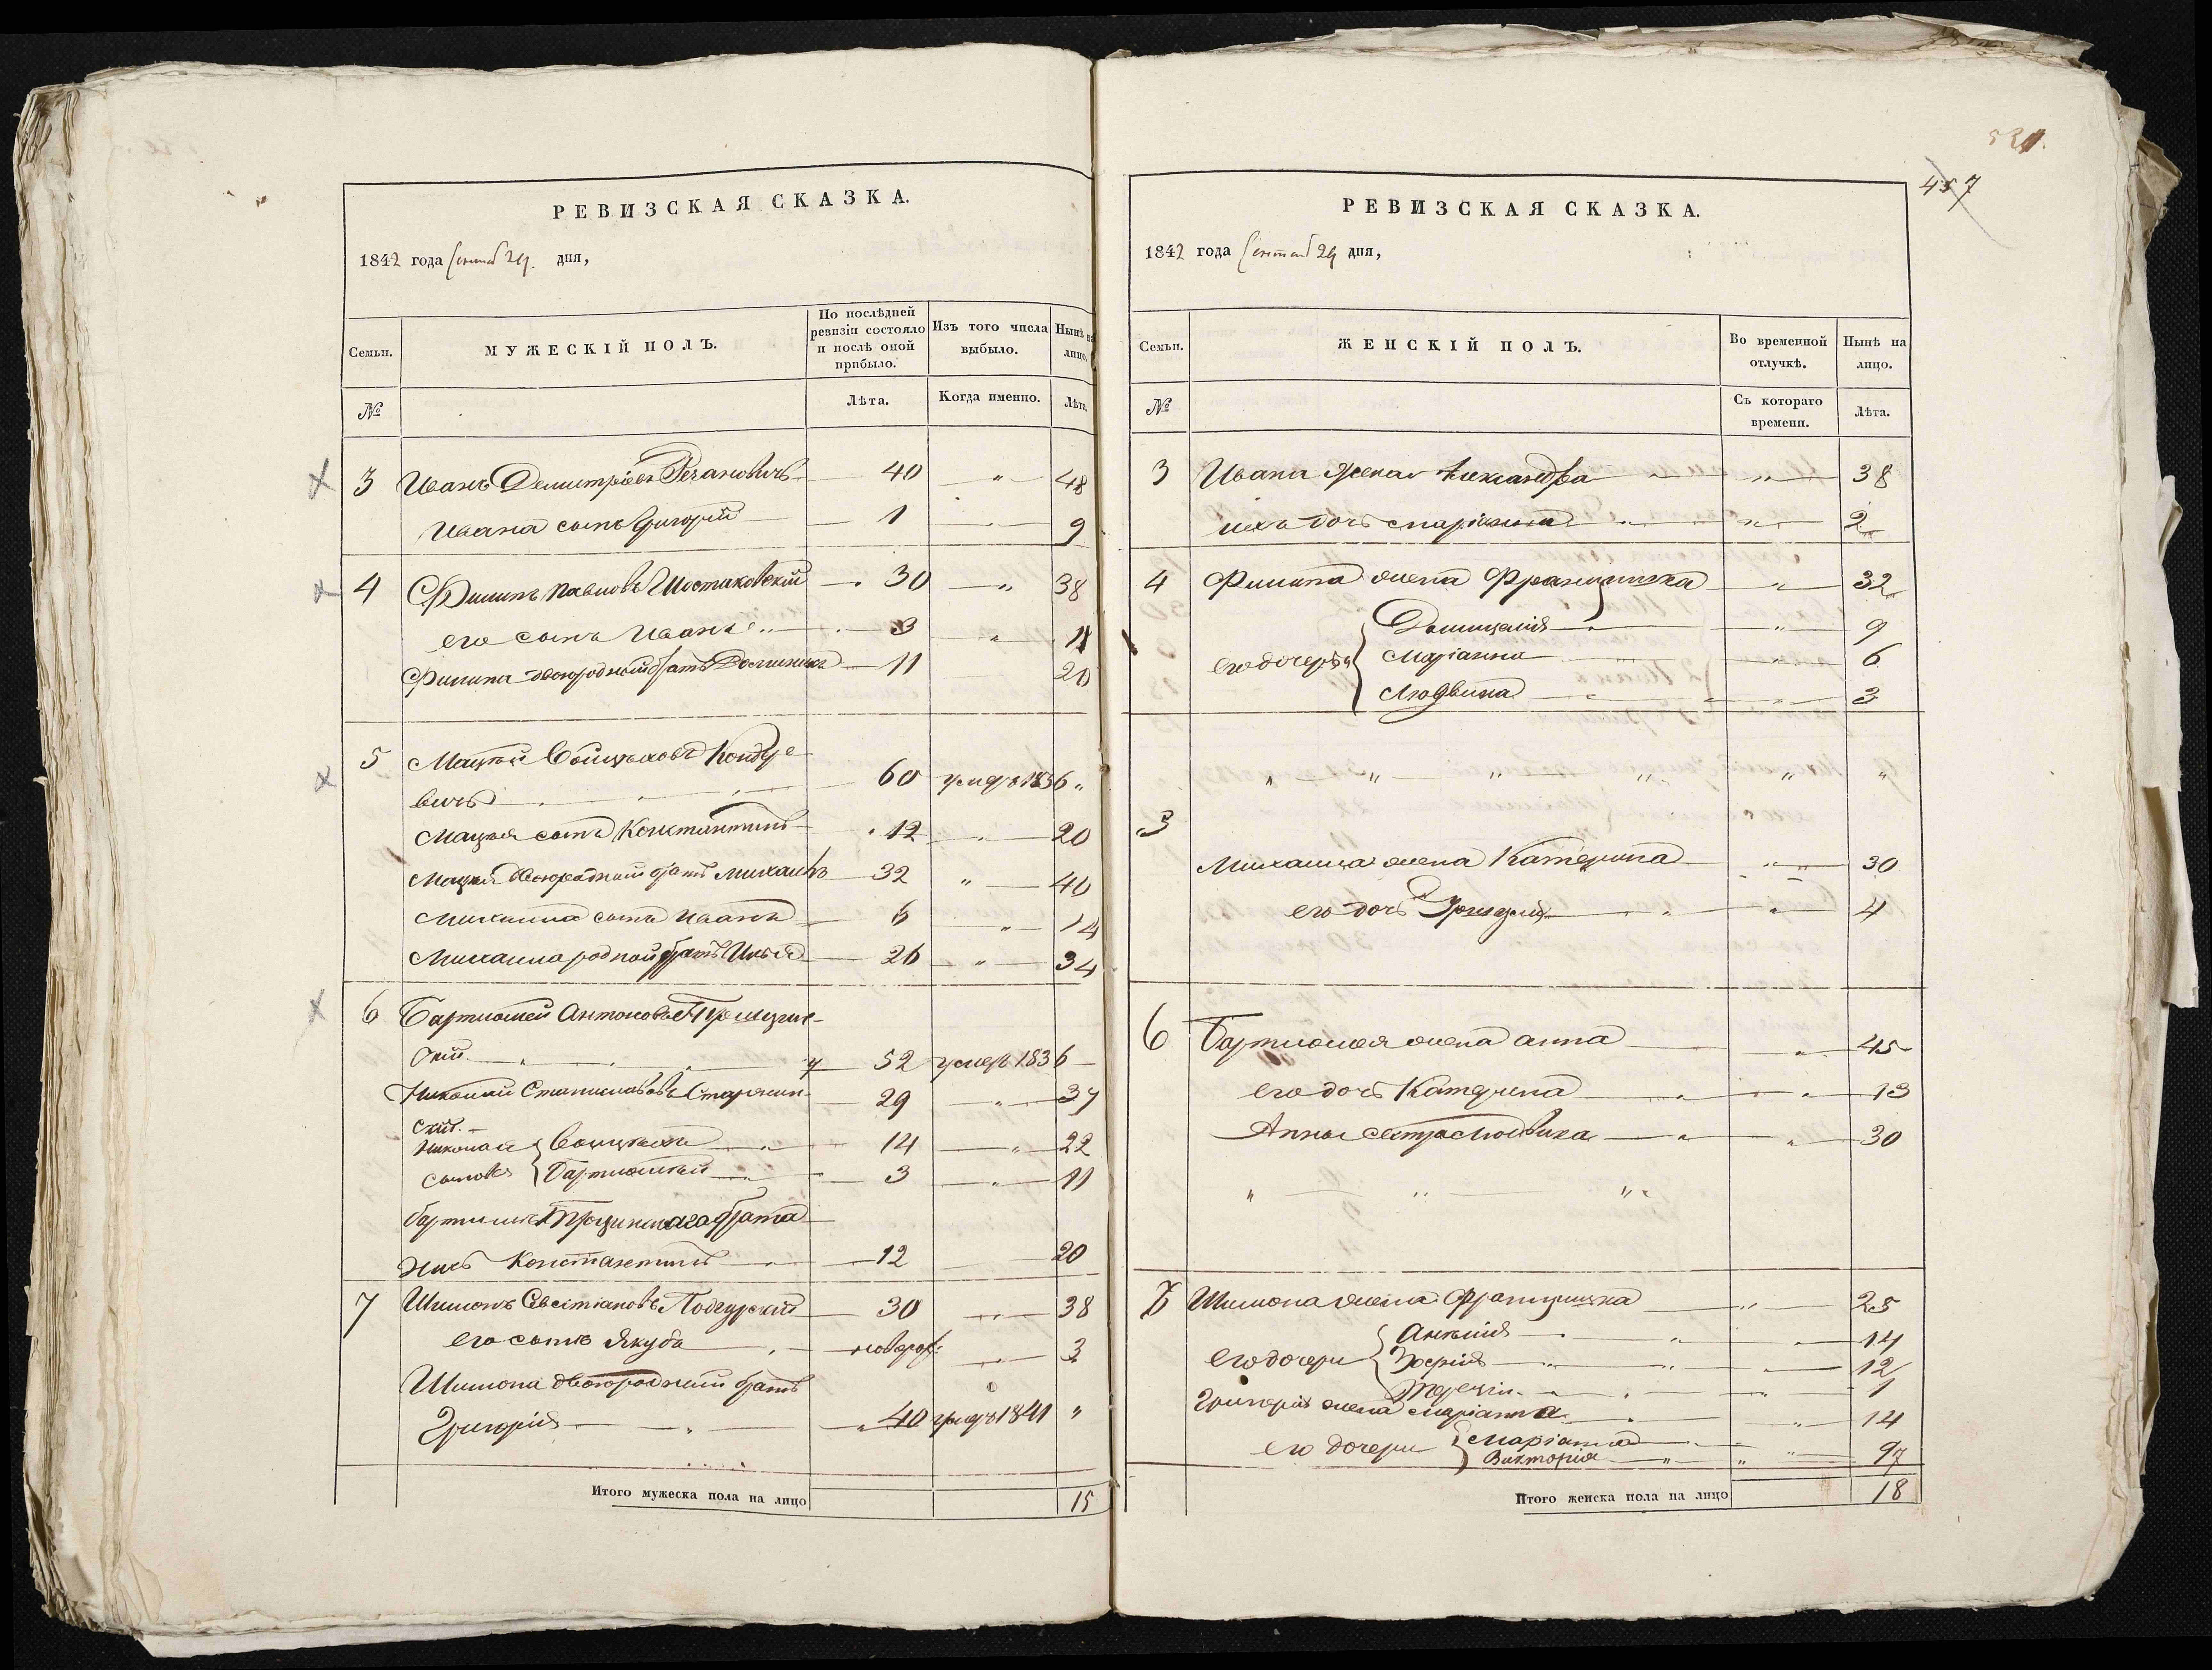 РЕВИЗСКАЯ СКАЗКА.
1842 года Сентяб 29. дня,
Семьи.
МУЖЕСКІЙ ПОЛЪ.
По послѣдней ревизіи состояло и послѣ оной прибыло.
Изъ того числа выбыло.
Нынѣ на лицо.
№
Лѣта.
Когда именно.
Лѣта.
3 Иванъ Демитріевъ 40 " 48
Ивана сынъ Григорій 1 9
4 Филипъ Павловъ Шостаковскій 30 " 38
его сынъ Иванъ 3 " 11
Филипа двоюродный братъ Доминикъ 11 20
5 Мацѣй Войцѣховъ Кондра
вичъ 60 умеръ 1836 "
Мацѣя сынъ Константинъ 12 20
Мацѣя двоюродный братъ Михаилъ 32 " 40
Михаила сынъ Иванъ 6 " 14
Михаила родной братъ 26 " 34
6 Бартломей Антоновъ
скій 52 умеръ 1836
Николай Станиславовъ 29 " 37
скій.
Николая Войцѣхъ 14 " 22
сыновья Бартломей 3 " 11
Бартломея брата
Константинъ 12 20
7 Шимонъ Севстіановъ Подгурскій 30 " 38
его сынъ Якубъ новорож: 3
Шимона двоюродный братъ
Григорій 40 умеръ 1841 "
Итого мужеска пола на лицо 15
521.
457
РЕВИЗСКАЯ СКАЗКА.
1842 года Сентяб 29 дня,
Семьи.
ЖЕНСКІЙ ПОЛЪ.
Во временной отлучкѣ.
Нынѣ на лицо.
№
Съ котораго времени.
Лѣта.
3 Ивана жена Александра " 38
ихъ дочь Маріанна " 2
4 Филипа жена Францишка " 32
Домицелія " 9
его дочери Маріанна " 6
Людвика 3
" " " " " "
3
Михаила жена Катерина " 30
его дочь " 4
6 Бартломея жена Анна " 45
его дочь Катерина " 13
Анны сестра Людвика " 30
" " "
Шимона жена Францишка " 25
Анелія " 14
его дочери Зофія " 12
1
Григорія жена Маріанна 14
его дочери Маріанна 9
Викторія " " 7
Итого женска пола на лицо 18